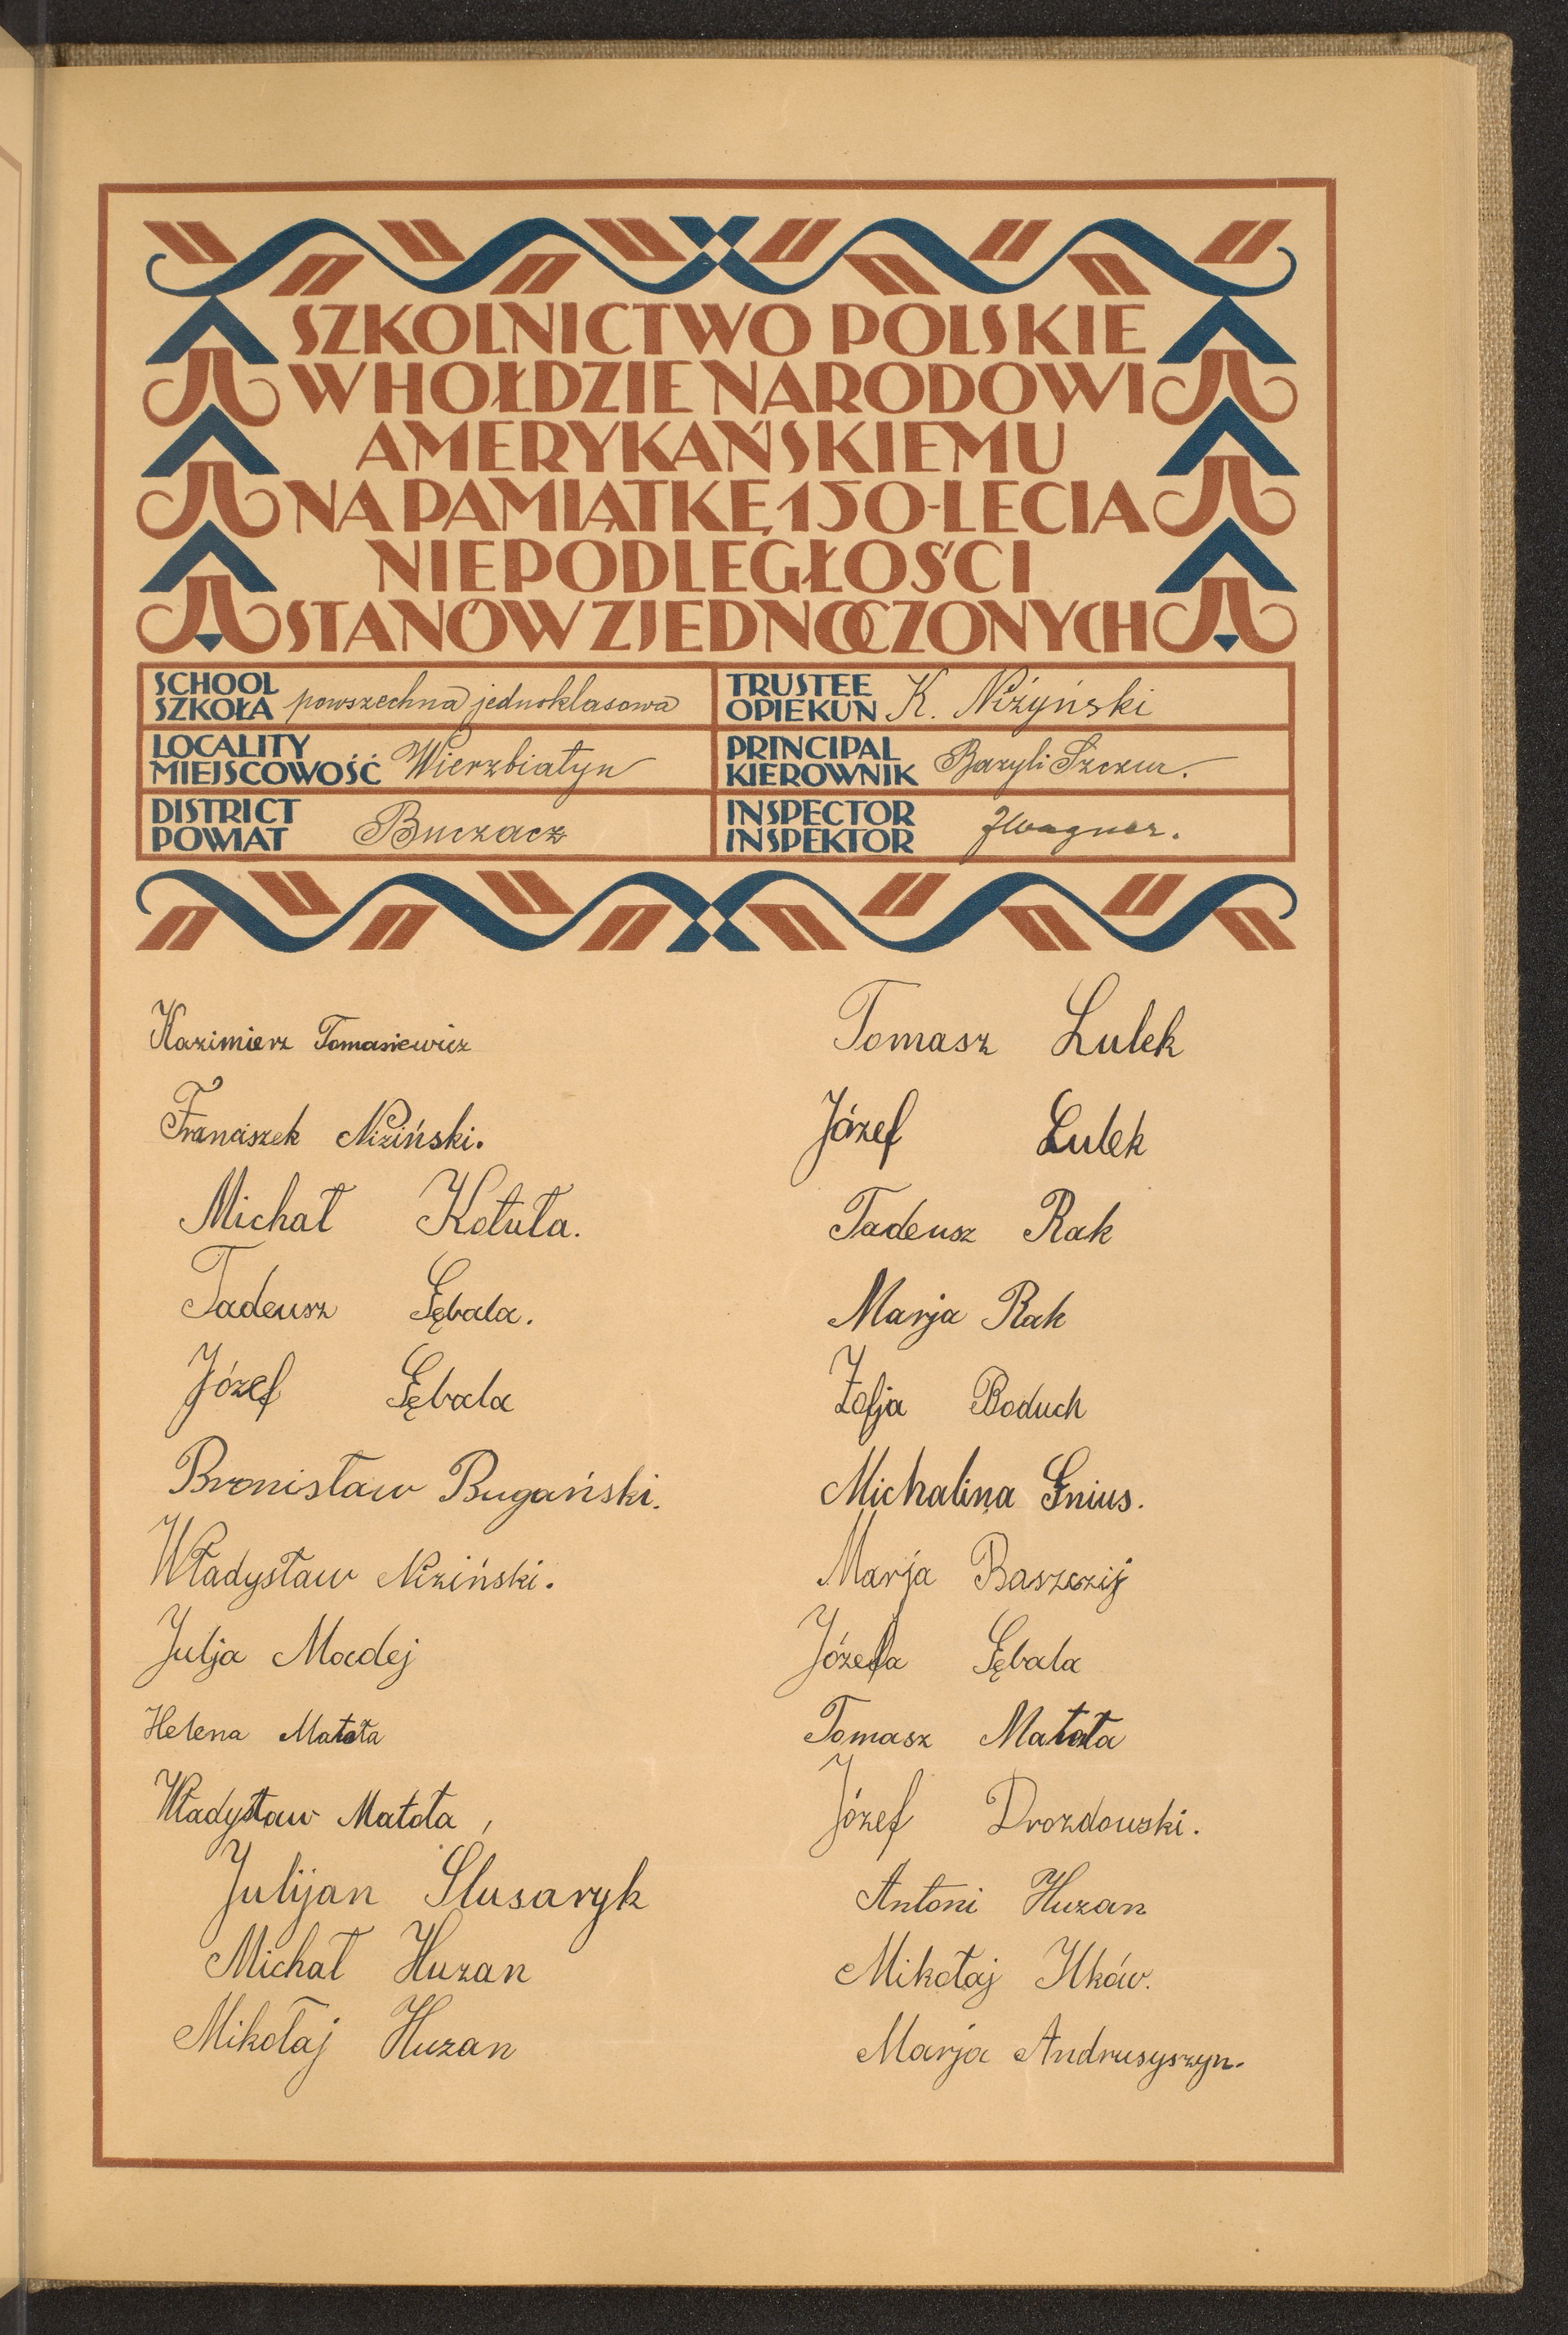 SZKOLNICTWO POLSKIE
W HOŁDZIE NARODOWI
AMERYKAŃSKIEMU
NA PAMIĄTKĘ 150-LECIA
NIEPODLEGŁOŚCI
STANÓW ZJEDNOCZONYCH
SCHOOL
SZKOŁA powszechna jednoklasowa
TRUSTEE
OPIEKUN K. Niżyński
LOCALITY
MIEJSCOWOŚĆ Wierzbiatyn
PRINCIPAL
KIEROWNIK Bazyli Szczur.
DISTRICT
POWIAT Buczacz
INSPECTOR
INSPEKTOR JWagner.
Kazimierz Tomasiewicz
Franciszek Niziński.
Michał Kotuła.
Tadeusz Gębala.
Józef Gębala
Bronisław Bugański.
Władysław Niziński.
Julja Madej
Helena Matoła
Władysław Matoła,
Julijan Slusaryk
Michał Huzan
Mikołaj Huzan
Tomasz Lulek
Józef Lulek
Tadeusz Rak
Marja Rak
Zofja Boduch
Michalina Gnius.
Marja Baszczij
Józefa Gębala
Tomasz Matoła
Józef Drozdowski.
Antoni Huzan
Mikołaj Ilków.
Marja Andrusyszyn.